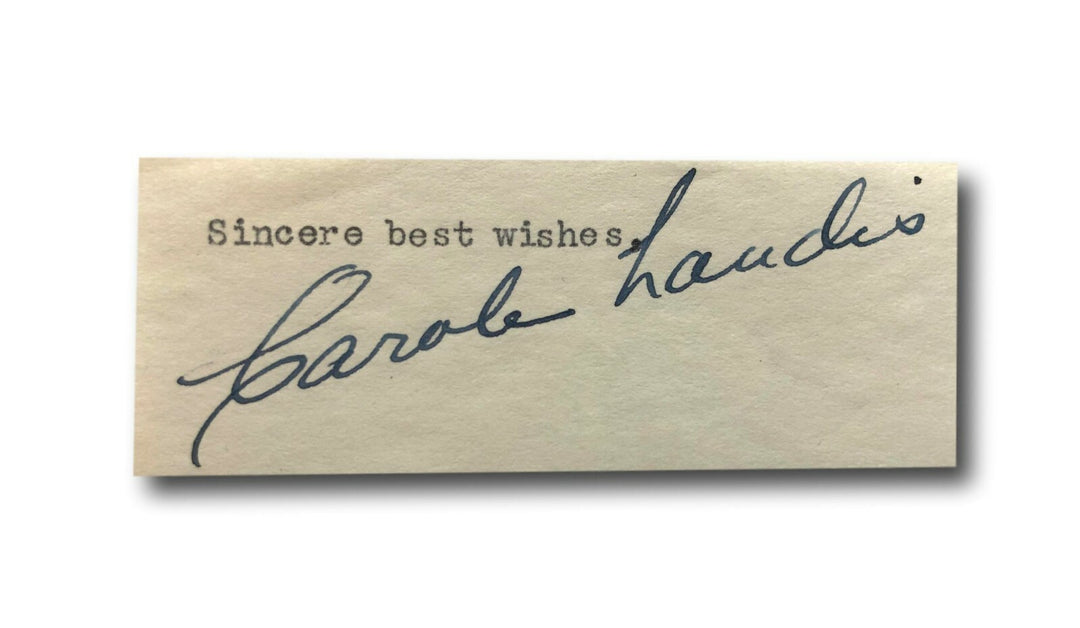 Sincere best wishes,
Carole Landis